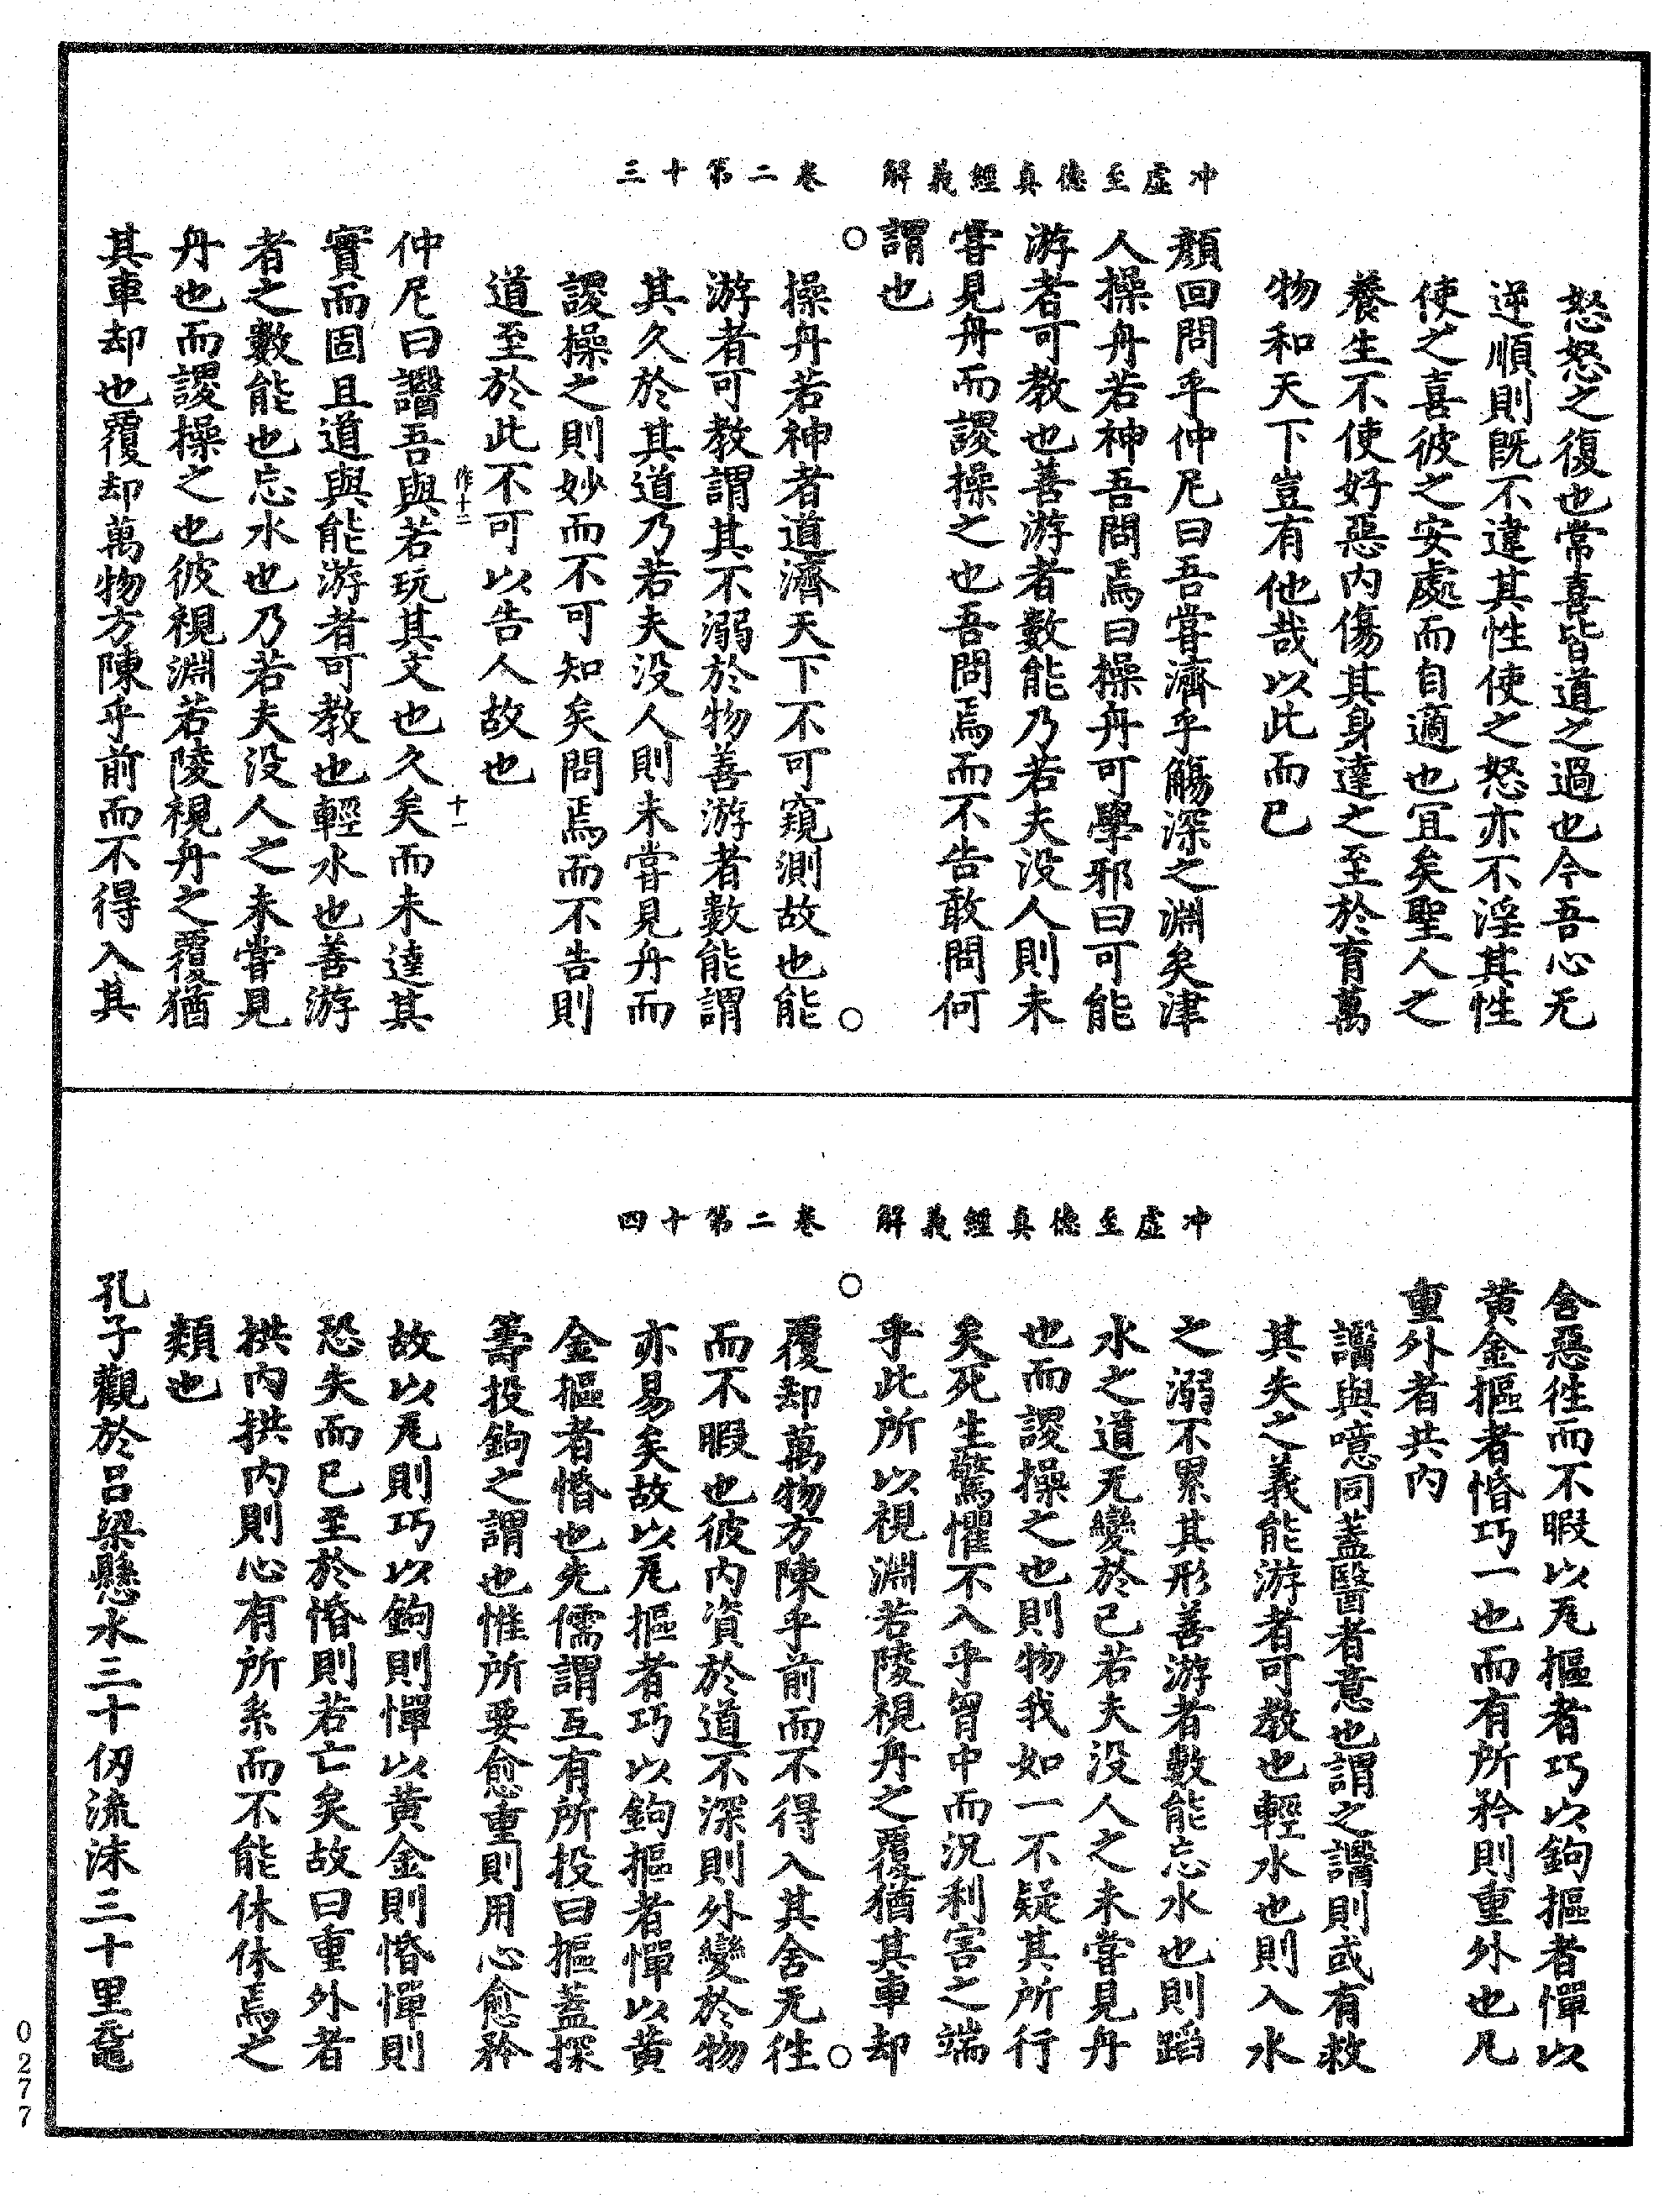 冲虛至德真經義解　卷二第十三
怒怒之復也常喜皆道之過也今吾心无
逆順則旣不違其性使之怒亦不淫其性
使之喜彼之安處而自適也宜矣聖人之
養生不使好惡內傷其身達之至於育萬
物和天下豈有他哉以此而已
顏回問乎仲尼曰吾嘗濟乎觴深之淵矣津
人操舟若神吾問焉曰操舟可學邪曰可能
游者可教也善游者數能乃若夫没人則未
嘗見舟而謖操之也吾問焉而不告敢問何
謂也
操舟若神者道濟天下不可窺測故也能
游者可教謂其不溺於物善游者數能謂
其久於其道乃若夫没人則未嘗見舟而
謖操之則妙而不可知矣問焉而不告則
道至於此不可以告人故也
作十二
仲尼曰譆吾與若玩其文也久矣而未達其
十一
實而固且道與能游者可教也輕水也善游
者之數能也忘水也乃若夫没人之未嘗見
舟也而謖操之也彼視淵若陵視舟之覆猶
其車却也覆却萬物方陳乎前而不得入其
冲虛至德真經義解　卷二第十四
舍惡徃而不暇以瓦摳者巧以鉤摳者憚以
黃金摳者惛巧一也而有所矜則重外也凡
重外者共內
譆與噫同蓋醫者意也謂之譆則或有救
其失之義能游者可教也輕水也則入水
之溺不累其形善游者數能忘水也則蹈
水之道无變於已若夫没人之未嘗見舟
也而謖操之也則物我如一不疑其所行
矣死生驚懼不入乎胷中而況利害之端
乎此所以視淵若陵視舟之覆猶其車却
覆却萬物方陳乎前而不得入其舍无徃
而不暇也彼內資於道不深則外變於物
亦易矣故以瓦摳者巧以鉤摳者憚以黃
金摳者惛也先儒謂互有所投曰摳蓋探
籌投鉤之謂也惟所要愈重則用心愈矜
故以瓦則巧以鉤則憚以黃金則惛憚則
恐失而已至於惛則若亡矣故曰重外者
拱內拱內則心有所系而不能休休焉之
類也
孔子觀於呂梁懸水三十仞流沫三十里黿
0277